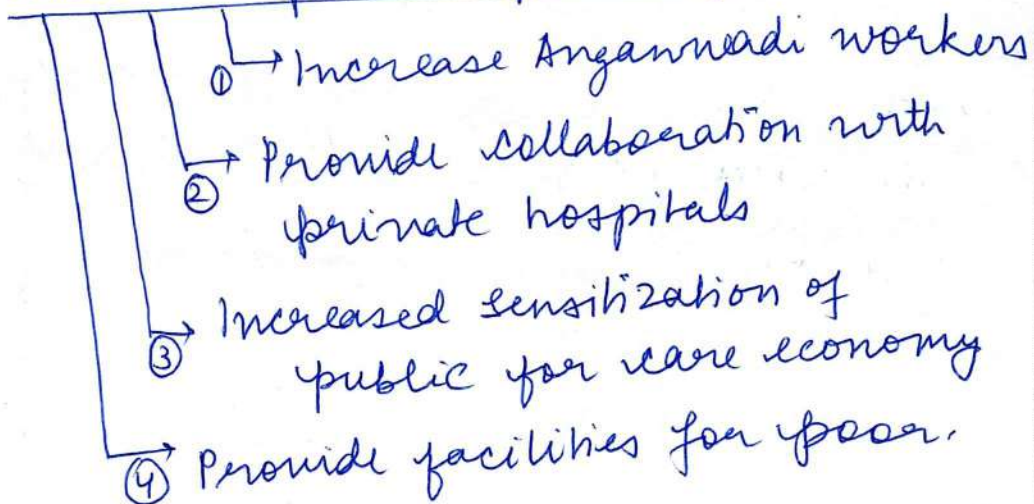 ① → Increase Anganwadi workers
② → Provide collaboration with
private hospitals
③ → Increased sensitization of
public for care economy
④ → Provide facilities for poor.